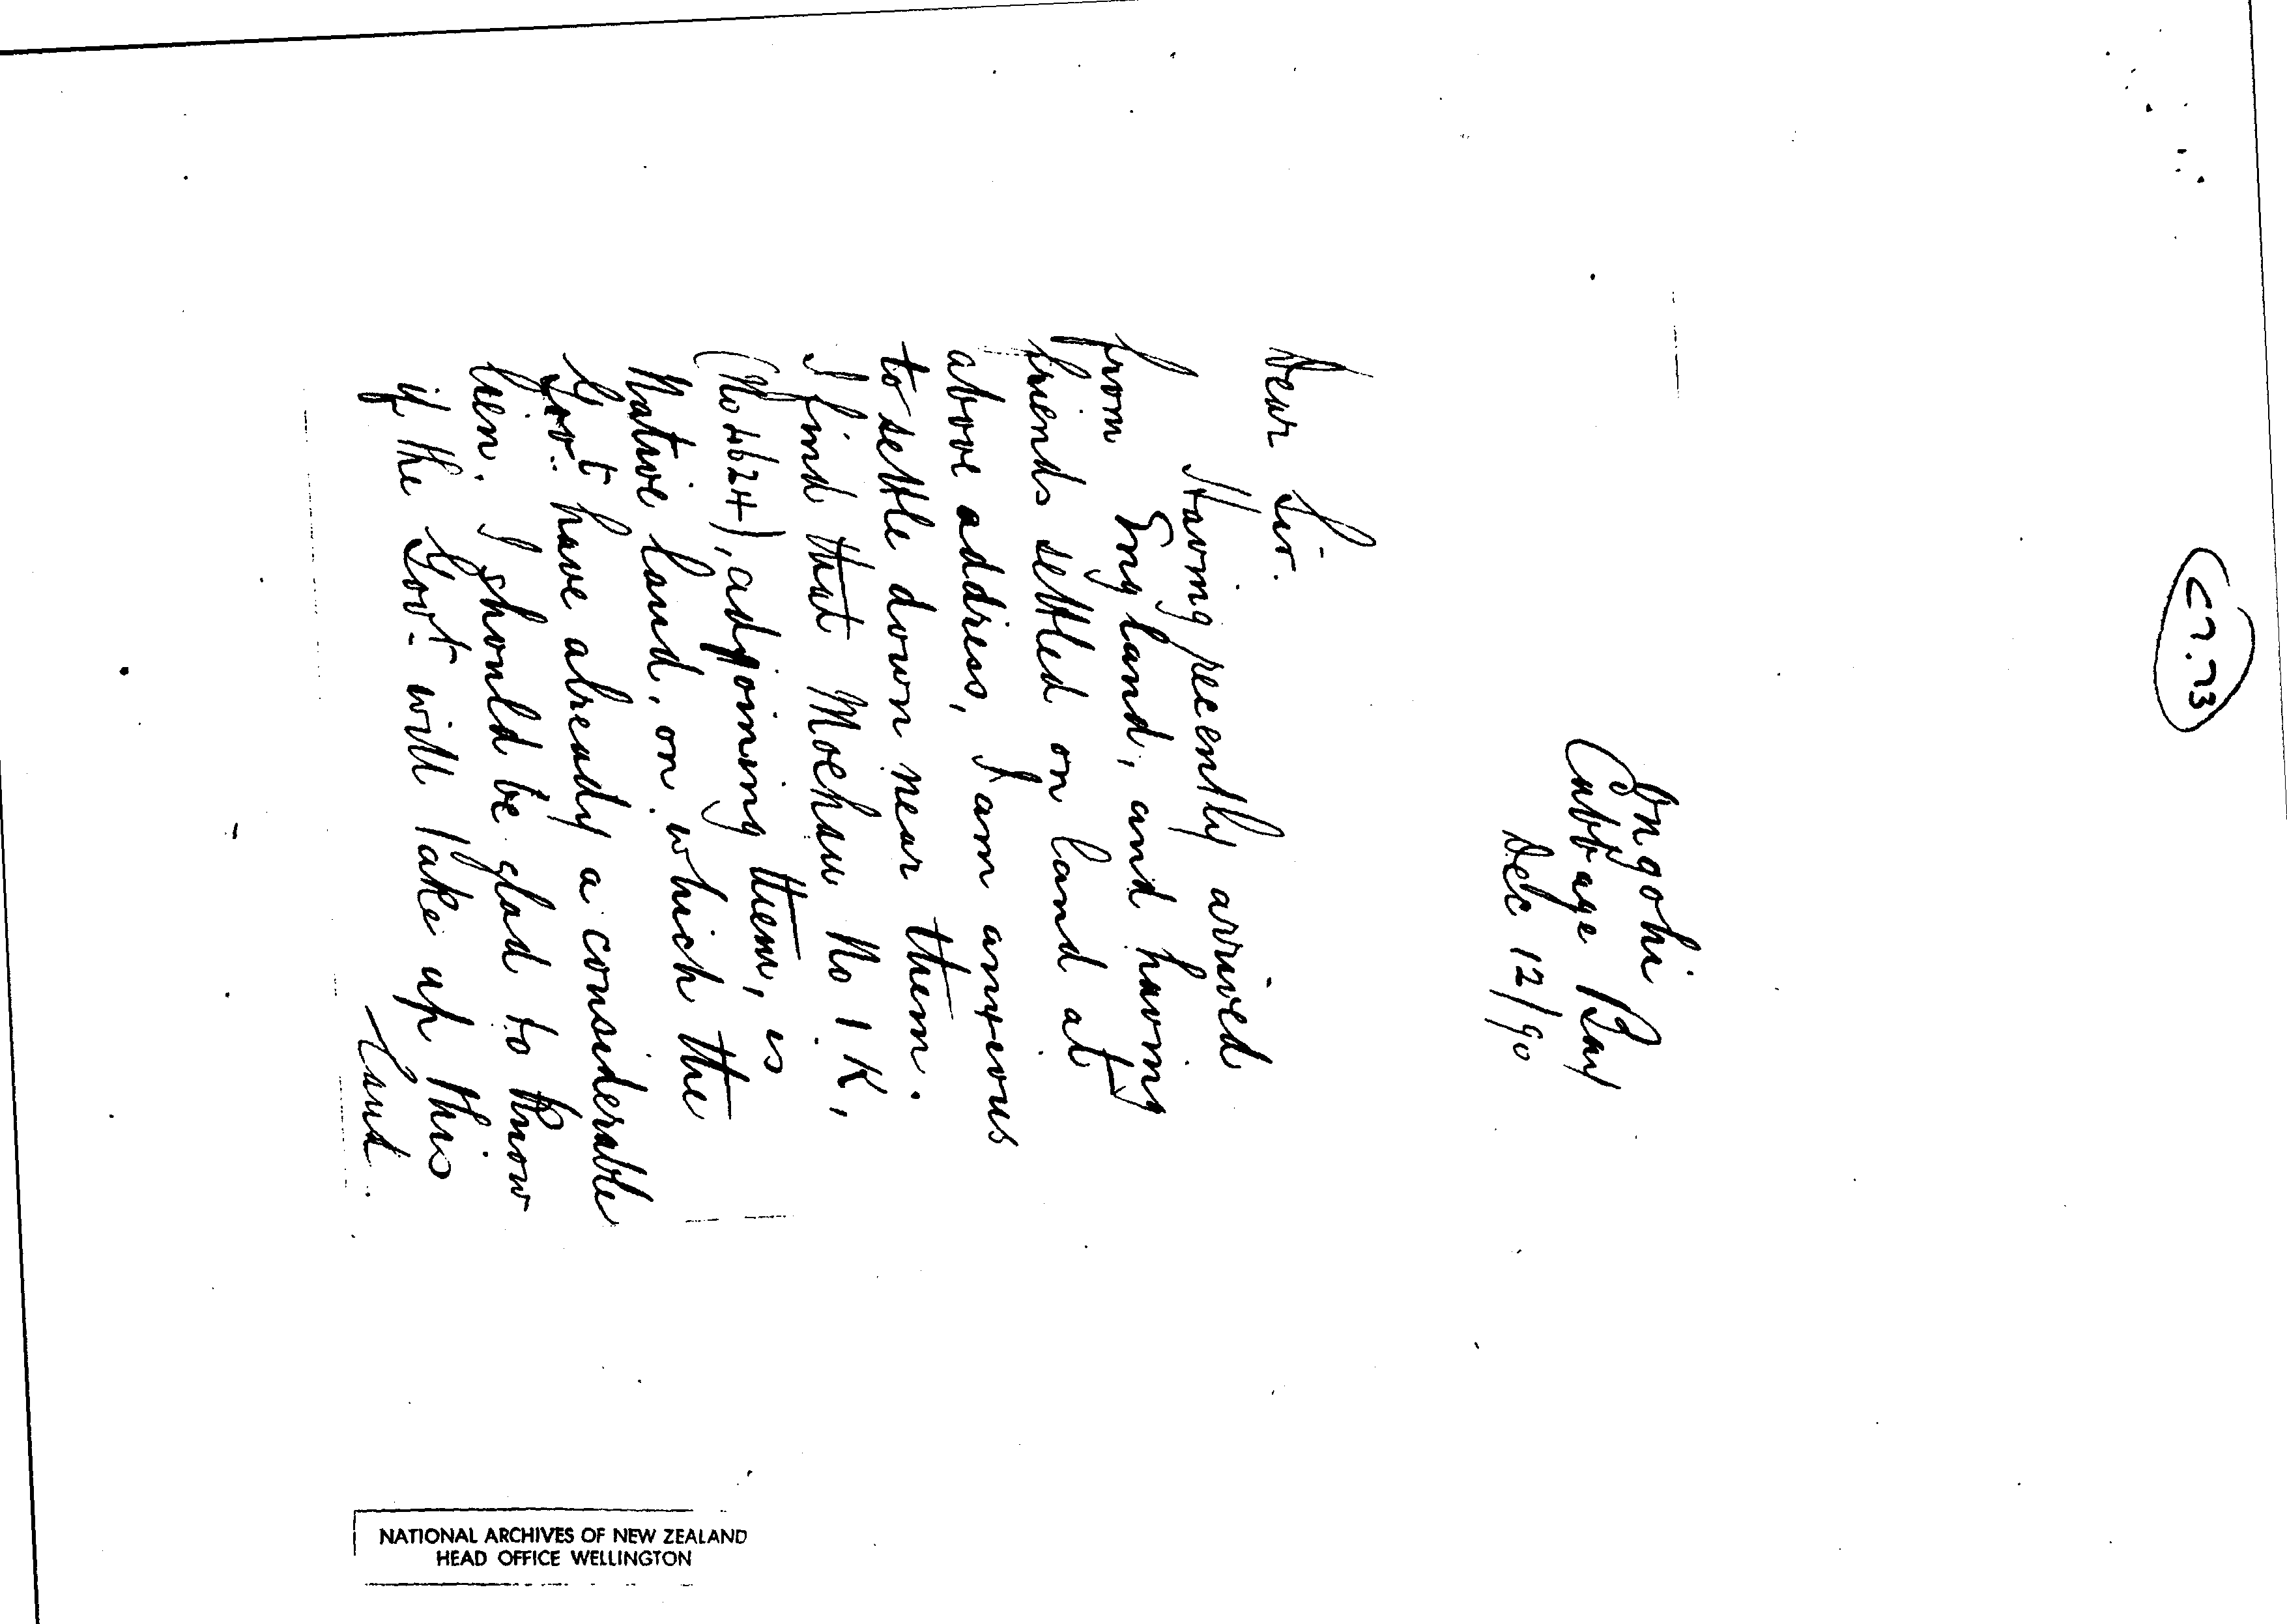 C7.73
Ongohi
Cabbage Bay
Dec 12/90
Dear Sir.
Having recently arrived
from England, and having
friends settled on land at
above address, I am anxious
to settle down near them.
I find that Moehau No 1 K,
(No 4624), adjoining them, is
Native land, on which the
Govt have already a considerable
lien. I should be glad to know
if the Govt will take up this
land.
NATIONAL ARCHIVES OF NEW ZEALAND
HEAD OFFICE WELLINGTON